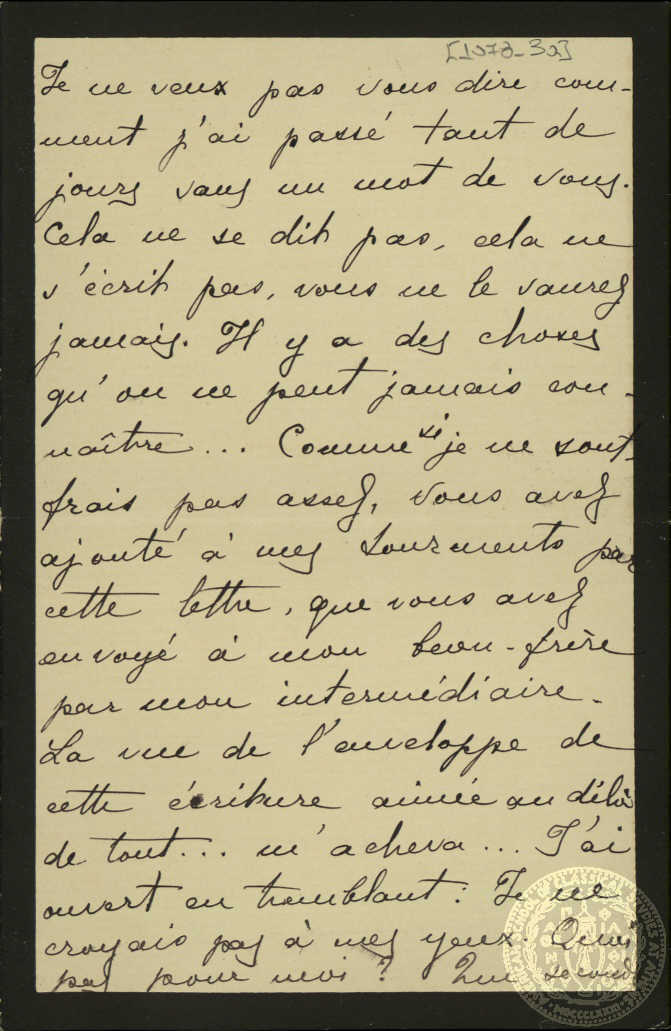 [1978_32]
Je ne veux pas vous dire com-
ment j'ai passé tant de
jours sans un mot de vous.
Cela ne se dit pas, cela ne
s'écrit pas, vous ne le saurez
jamais. Il y a des choses
qu'on ne peut jamais con-
naître... Comme si je ne souf-
frais pas assez, vous avez
ajouté à mes tourments par
cette lettre, que vous avez
envoyé à mon beau-frère
par mon intermédiaire.
La vue de l'enveloppe de
cette écriture aimée au délà
de tout... m'acheva... J'ai
ouvert en tremblant: Je ne
croyais pas à mes yeux. Quoi
pas pour moi? Une seconde